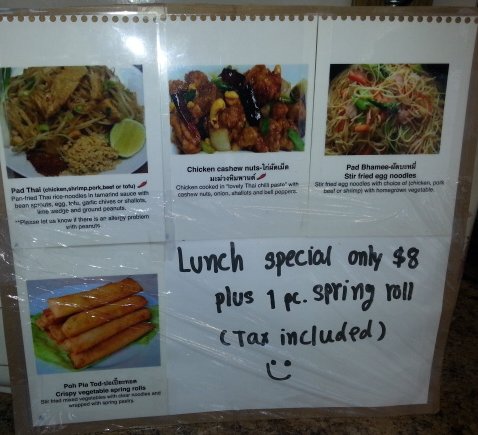 Pad Thai (chicken,shrimp,pork,beef or tofu)
Pan-fried Thai rice-noodles in tamarind sauce with
bean sprouts, egg, tofu, garlic chives or shallots,
lime wedge and ground peanuts.
**Please let us know if there is an allergy problem
with peanuts
Chicken cashew nuts-ไก่ผัดเม็ด
มะม่วงหิมพานต์
Chicken cooked in "lovely Thai chilli paste" with
cashew nuts, onion, shallots and bell peppers.
Pad Bhamee-ผัดบะหมี่
Stir fried egg noodles
Stir fried egg noodles with choice of (chicken, pork
beef or shrimp) with homegrown vegetable.
Lunch special only $8
plus 1 pc. spring roll
(Tax included)
Poh Pia Tod-ปอเปี๊ยะทอด
Crispy vegetable spring rolls
Stir fried mixed vegetables with clear noodles and
wrapped with spring pastry.